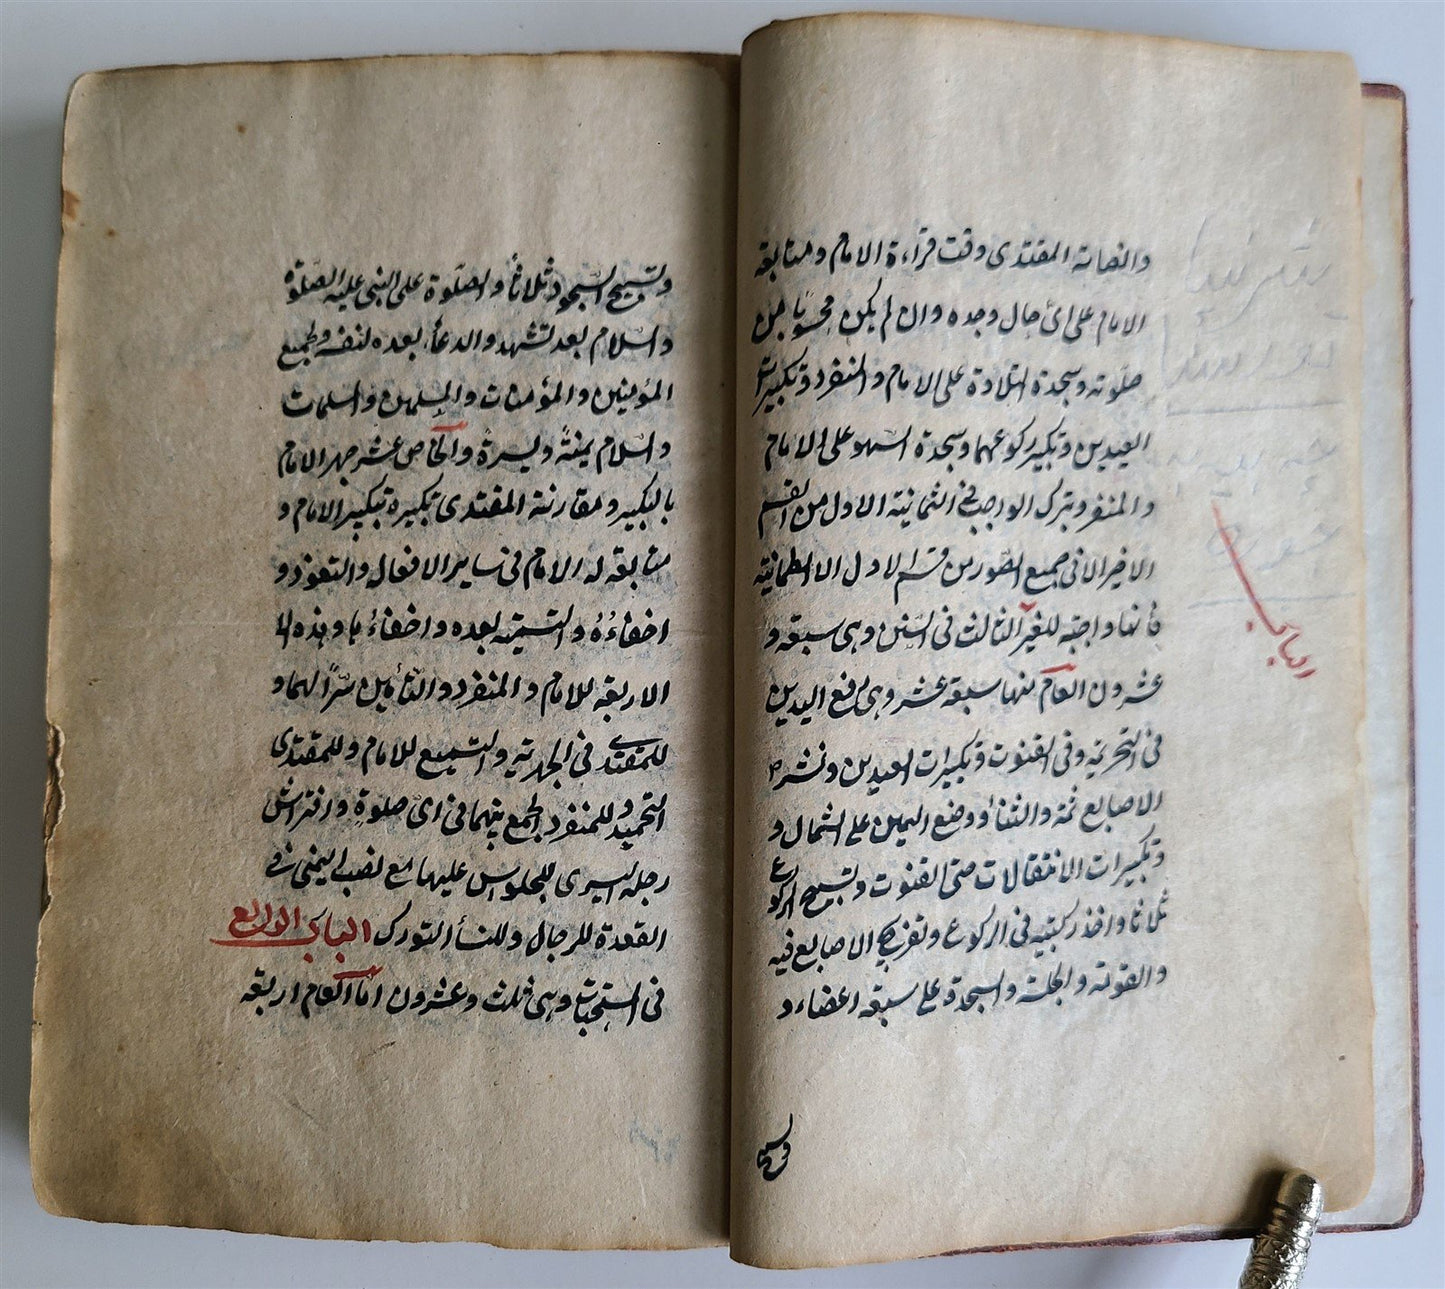 وانصاتة المقتدى وقت قراءة الامام ومتابعة
الامام على اى حال وجده وان لم يكن محسوبا من
صلوته وسجدة التلاوة على الامام والمنفرد وتكبيرات
العيدين وتكبير ركوعهما وسجدة السهو على الامام
والمنفرد وبترك الواجب فى الثمانية الاول من القسم
الاخير الا فى جميع الصور من قسم الاول الا الطمانية
فانها واجبة للغير الثالث فى السنن وهى سبعة و
عشرون العام منها سبعة عشر وهى رفع اليدين
فى التحريمة وفى القنوت وتكبيرات العيدين ونشر
الاصابع ثمة والثناء ووضع اليمين على الشمال و
وتكبيرات الانتقالات حتى القنوت وتسبيح الركوع
ثلاثا واخذ ركبتيه فى الركوع وتفريج الاصابع فيه
والقومة والجلسة والسجدة على سبعة اعضاء و
وتسبيح
الباب
وتسبيح السجود ثلاثا والصلوة على النبى عليه الصلوة
والسلام بعد تشهد والدعاء بعده لنفسه ولجميع
المؤمنين والمؤمنات والمسلمين والمسلمات
والسلام يمنة ويسرة والخاص عشر جهر الامام
بالتكبير ومقارنة المقتدى تكبيره تكبير الامام و
متابعة له الامام فى ساير الافعال والتعوذ و
اخفاءه والتسمية بعده واخفاءها وهذه
الاربعة للامام والمنفرد والتأمين سرا لهما و
للمقتدى فى الجهرية والتسميع للامام وللمقتدى
التحميد وللمنفرد الجمع بينهما فى اى صلوة وافتراش
رجله اليسرى للجلوس عليها مع نصب اليمنى فى
القعدة للرجال وللنساء التورك الباب الرابع
فى المستحبات وهى ثلث وعشرون اما العام اربعة